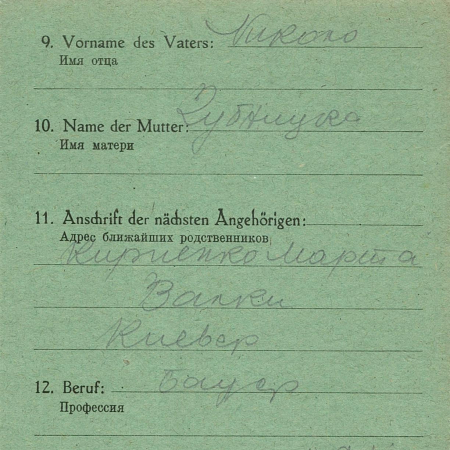 9. Vorname des Vaters: Николо
Имя отца
10. Name der Mutter: Зубницка
Имя матери
11. Anschrift der nächsten Angehörigen:
Адрес ближайших родственников
Кириенко Марта
Валки
Киевер
12. Beruf: Бауер
Профессия